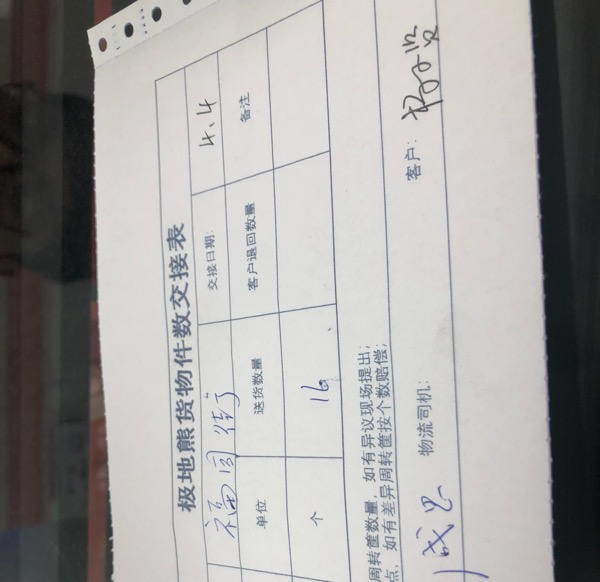 极地熊货物件数交接表
福同街 交接日期: 4.4
单位 送货数量 客户退回数量 备注
个 16
周转筐数量，如有异议现场提出；
点，如有差异周转筐按个数赔偿；
物流司机: 客户: